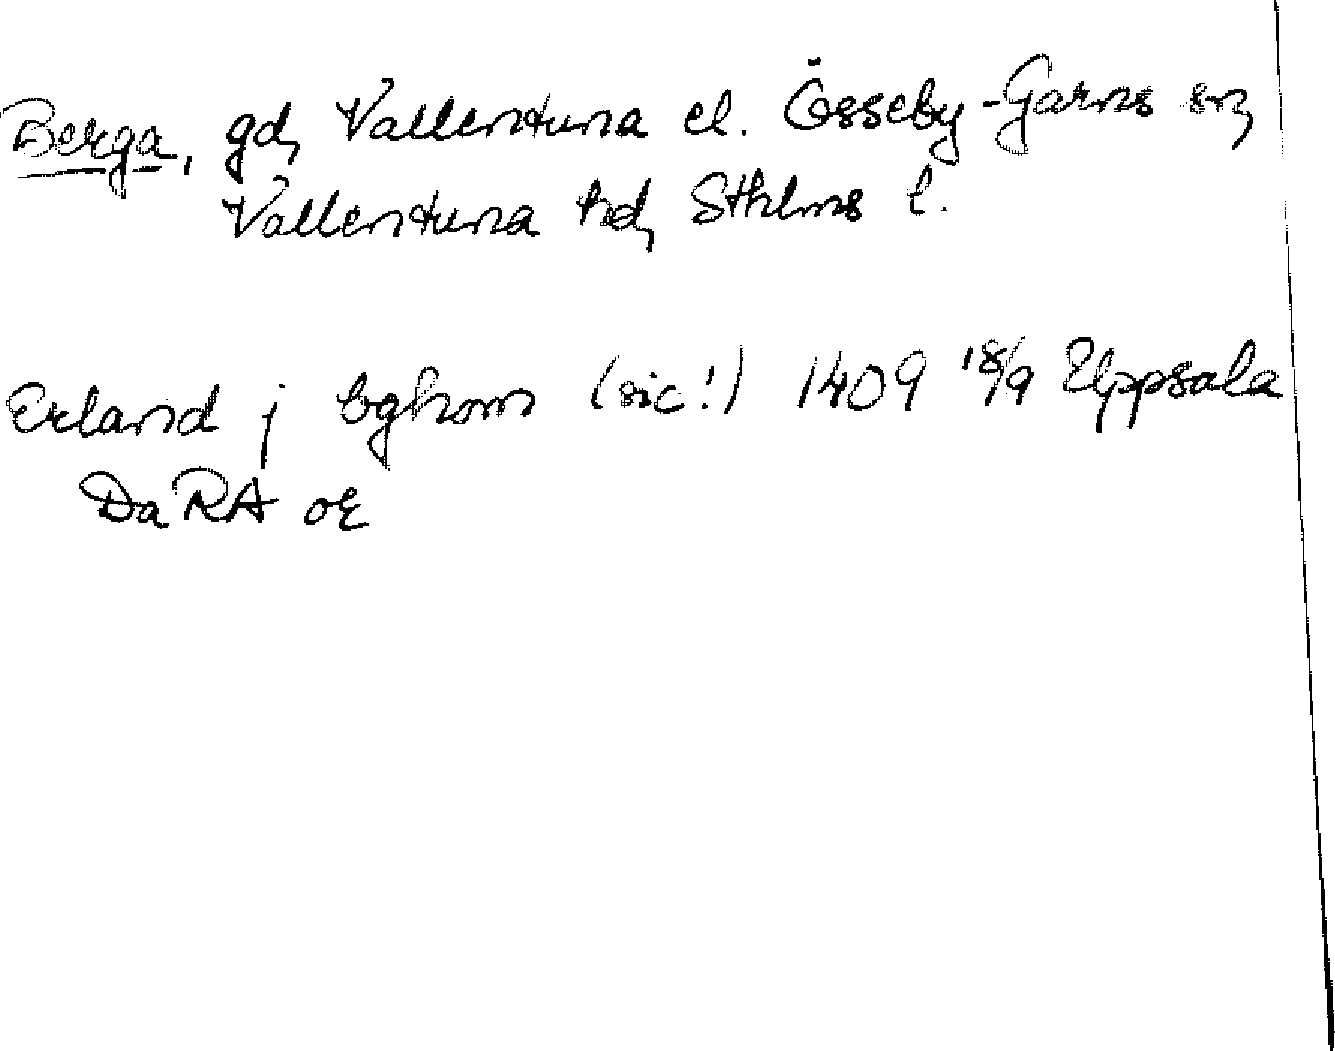 Berga, gd, Vallentuna el. Össeby-Garns sn,
Vallentuna hd, Sthlms l.
Erland j bghom (sic!) 1409 18/9 Uppsala
Da RA or